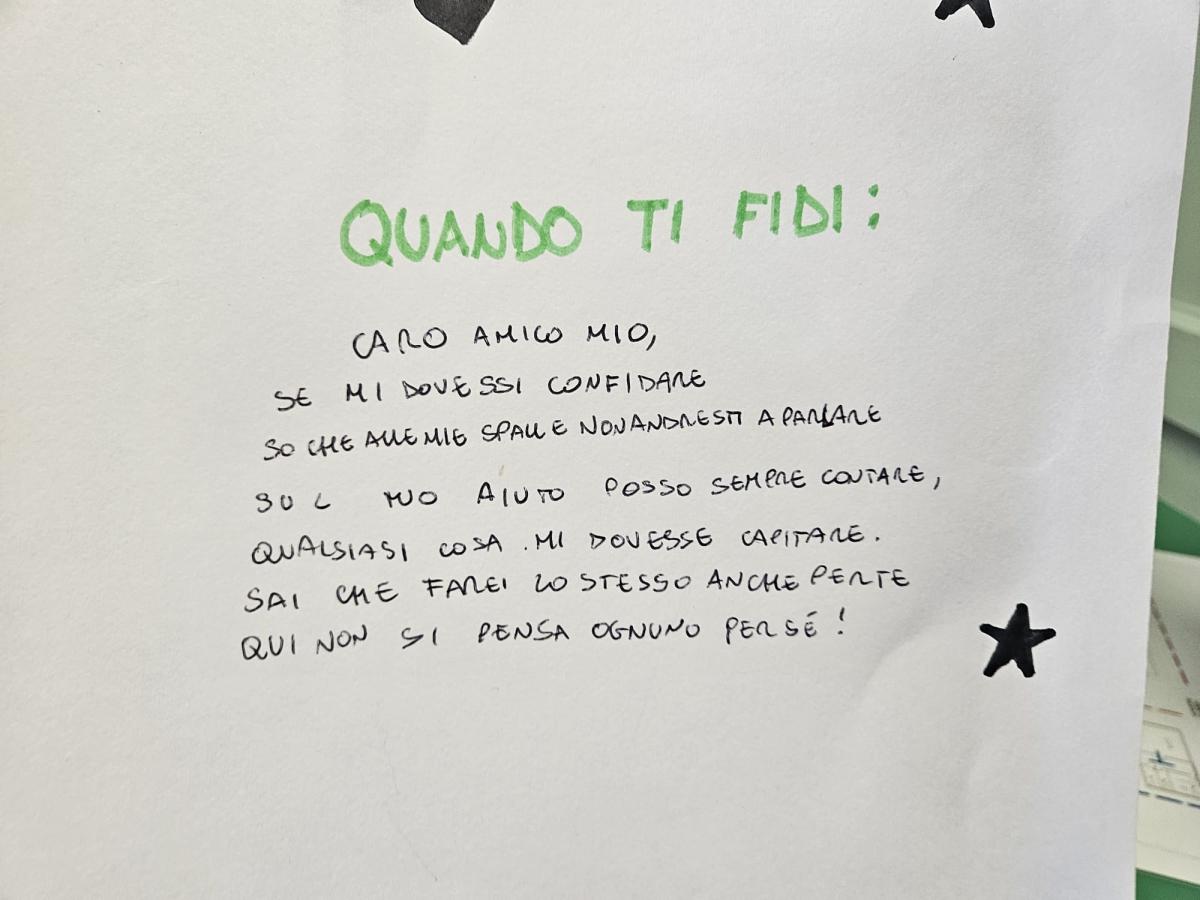 QUANDO TI FIDI:
CARO AMICO MIO,
SE MI DOVESSI CONFIDARE
SO CHE ALLE MIE SPALLE NON ANDRESTI A PARLARE
SUL TUO AIUTO POSSO SEMPRE CONTARE,
QUALSIASI COSA MI DOVESSE CAPITARE.
SAI CHE FAREI LO STESSO ANCHE PER TE
QUI NON SI PENSA OGNUNO PER SÉ!